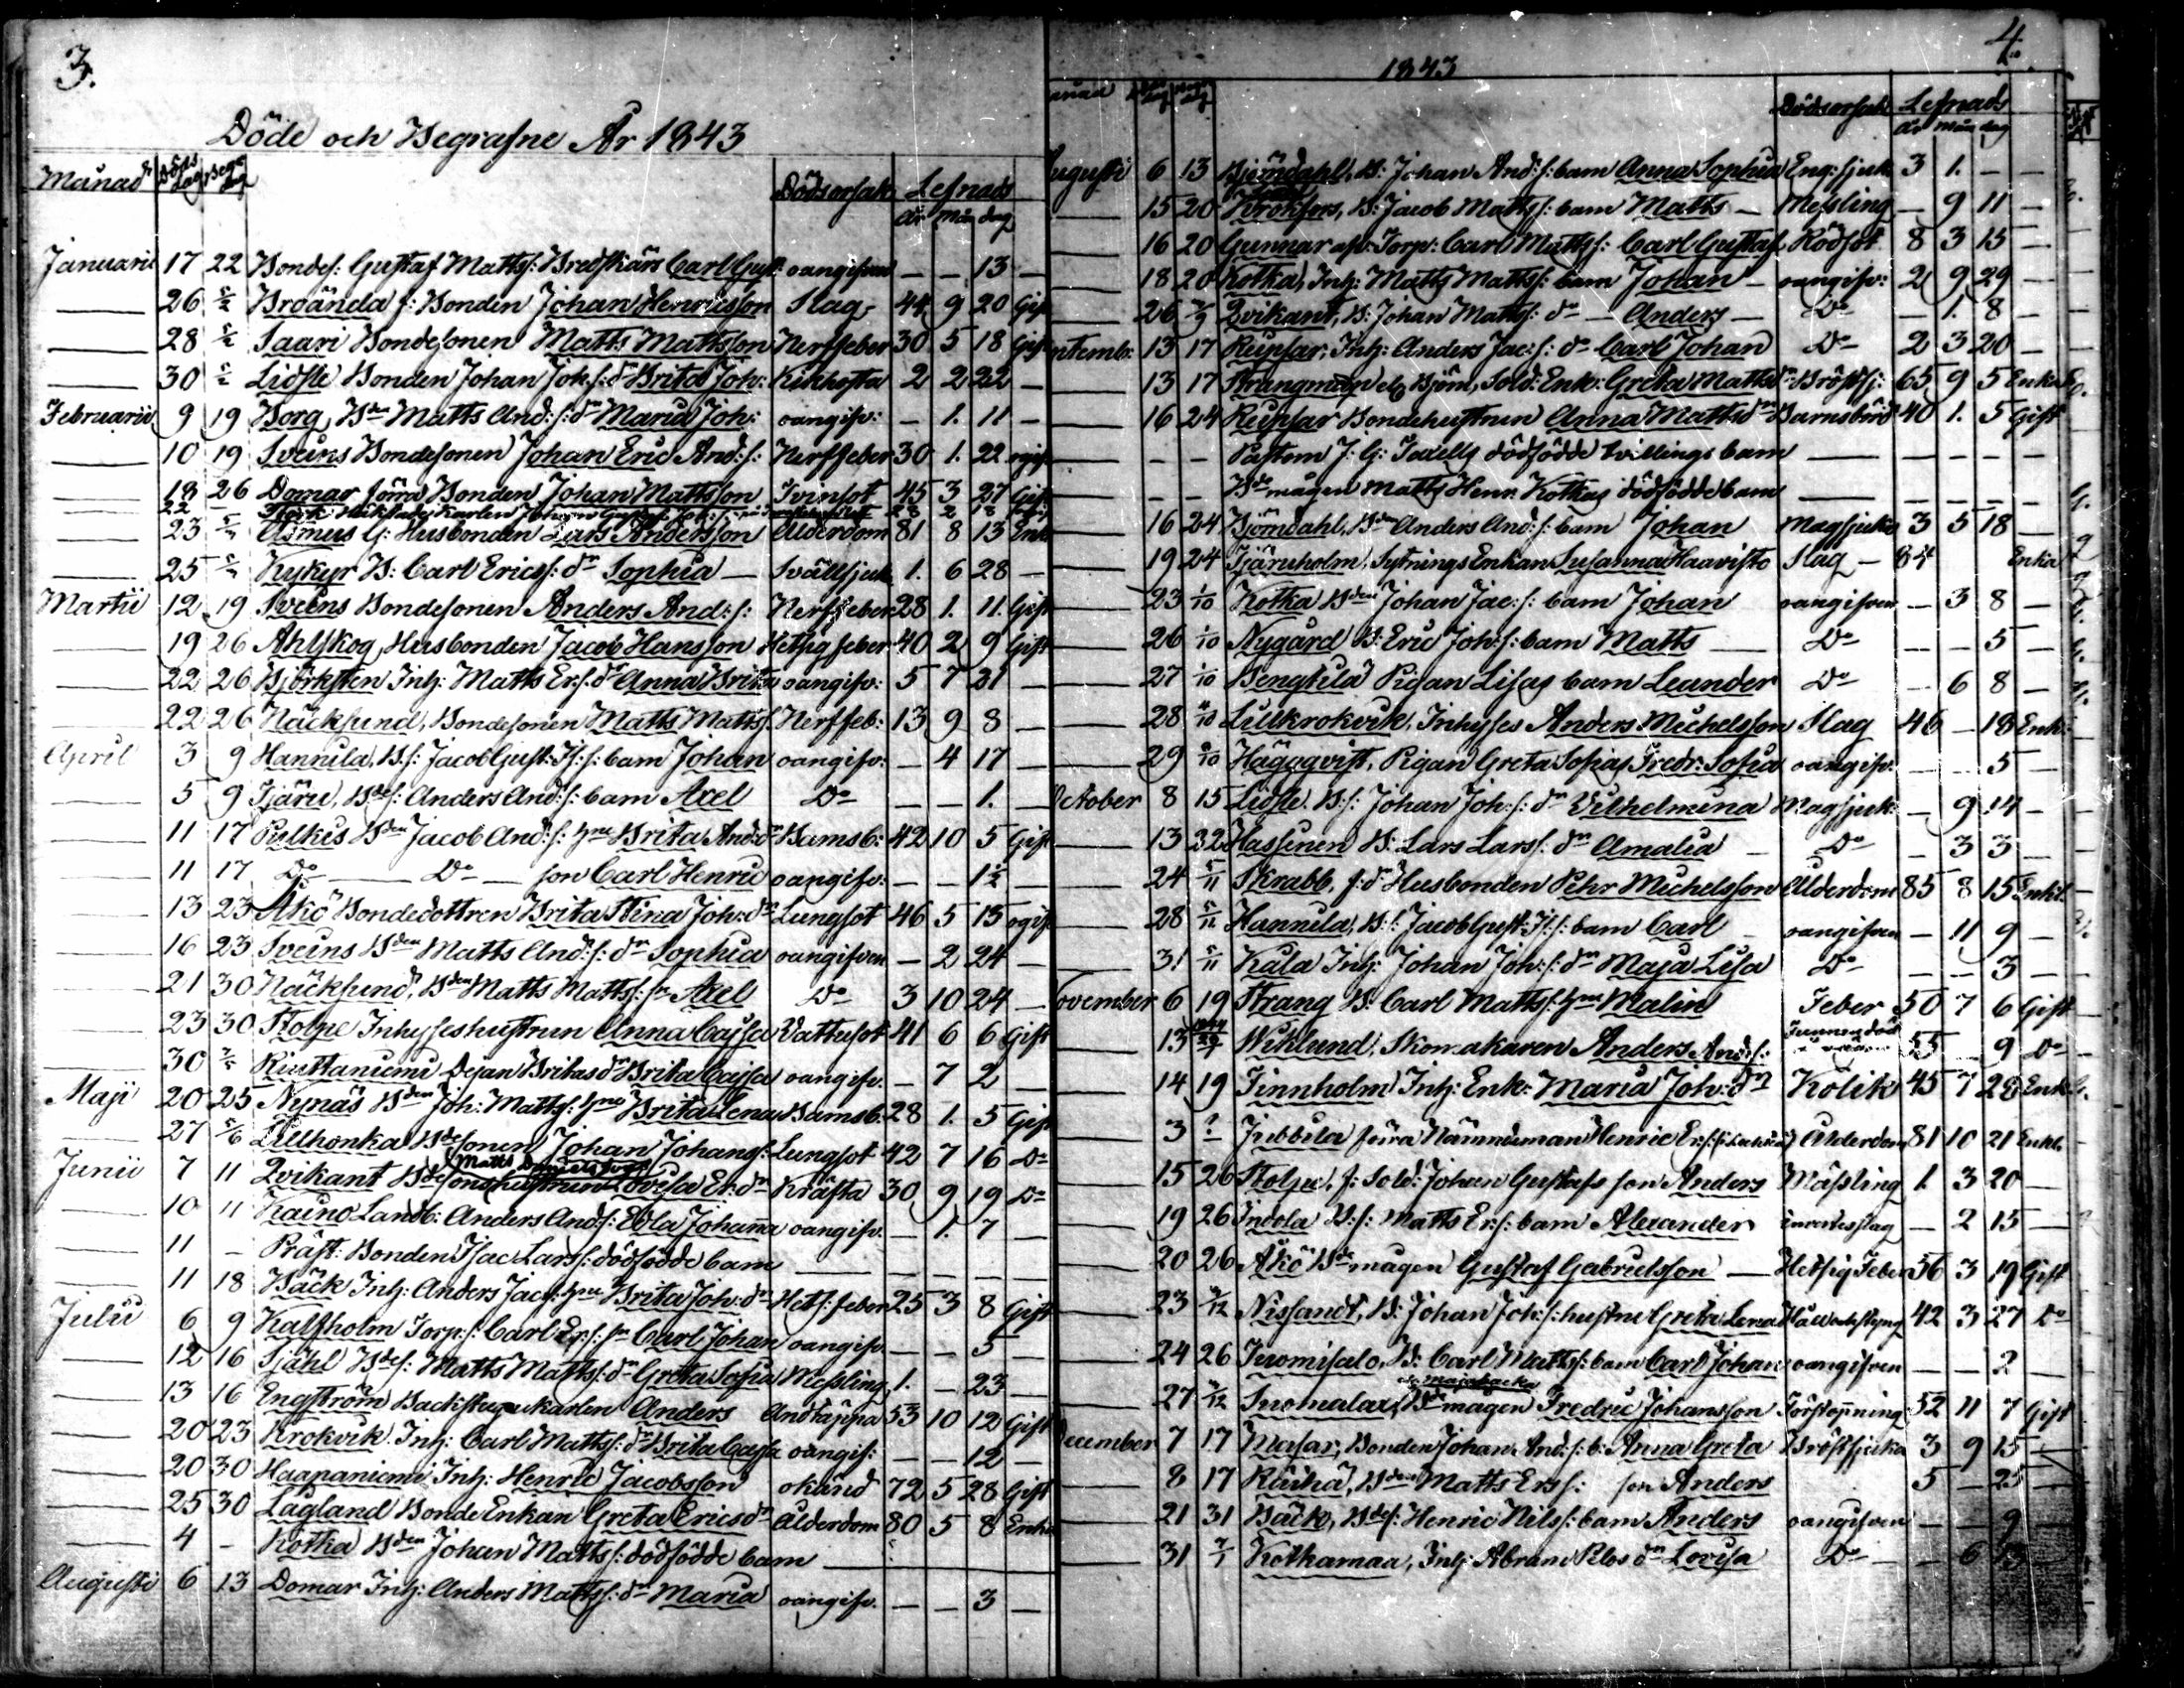 3.
Döde och Begrafne År 1843
Månad Döds dag Begr dag Dödsorsak Lefnads
år mån dag
Januarii 17 22 Bondes: Gustaf Mattss: Bredskärs Carl Gust: oangifven — — 13 —
— 26 5/2 Broända f: Bonden Johan Henricsson Slag 44 9 20 Gift
— 28 5/2 Saari Bondesonen Matts Mattsson Nerffeber 30 5 18 Gift
— 30 5/2 Lidsle Bonden Johan Joh: s: dr Brita Joh: Kikhosta 2 2 22 —
Februarii 9 19 Borg, Bdn Matts And: s: dr Maria Joh: oangifv: — 1. 11 —
— 10 19 Sveins Bondesonen Johan Eric And: s: Nerffeber 30 1. 22 ogift
— 18 26 Domar förra Bonden Johan Mattsson Tvinsot 45 3 27 Gift
22 — 28 2 18
— 23 5/3 Asmus G: Husbonden Lars Andersson Ålderdom 81 8 13 Enk
— 25 5/3 Kykyr B: Carl Erics: dr Sophia — Svällsjuk 1. 6 28 —
Martii 12 19 Sveins Bondesonen Anders And: s: Nerffeber 28 1. 11. Gift
— 19 26 Ahlskog, Husbonden Jacob Hansson Hetsig feber 40 2 9 Gift
— 22 26 Björksten Inh: Matts Er: s: dr Anna Brita oangifv: 5 7 21 —
— 22 26 Näcksund, Bondesonen Matts Matts: Nerffeb: 13 9 8 —
April 3 9 Hannila, B: s: Jacob Gust: Is: s: barn Johan oangifv: — 4 17 —
— 5 9 Tjäru, Bdes: Anders And: s: barn Axel Do — — 1. —
— 11 17 Pulkis Bden Jacob And: s: hru Brita And: dr Barnsb: 42 10 5 Gift
— 11 17 Do — Do — son Carl Henric oangifv: — — 1½ —
— 13 23 Åkö Bondedottren Brita Stina Joh: dr Lungsot 46 5 15 ogift
— 16 23 Sveins Bden Matts And: s: dr Sophia oangifven — 2 24 —
— 21 30 Näcksund, Bden Matts Matts: sn Axel Do 3 10 24 —
— 23 30 Stolpe Inhyseshustrun Anna Cajsa Vattusot 41 6 6 Gift
— 30 7/5 Riuttaniemi Dejan Britas dr Brita Cajsa oangifv. — 7 2 —
Maji 20 25 Nynäs Bden Joh: Mattss: hru Brita Lena Barnsb: 28 1. 5 Gift
— 27 5/6 Lillhonka Bdesonen Johan Johans: Lungsot 42 7 16 Do
Junii 7 11 Qvikant Bdesonshustrun Lovisa Er: dr Kräfta 30 9 19 Do
— 10 11 Kaino Landb: Anders And: s: Ebla Johanna oangifv. — 1. 7 —
— 11 — Präst: Bonden Isac Lars: dödfödde barn — — — — —
— 11 18 Bäck Inh: Anders Jac: s: hru Brita Joh: dr Hets: feber 25 3 8 Gift
Julii 6 9 Kalfholm Torp: s: Carl Er: s: sn Carl Johan oangifv. — — 5 —
— 12 16 Sjähl Bdes: Matts Mattss: dr Greta Sofia Messling 1. — 23 —
— 13 16 Engström Backstugukarlen Anders Andtäppa 53 10 12 Gift
— 20 23 Krokvik Inh: Carl Mattss: dr Brita Cajsa oangif: — — 12 —
— 20 30 Haapaniemi Inh: Henric Jacobsson okänd 72 5 28 Gift
— 25 30 Lågland Bonde Enkan Greta Ericsdr Ålderdom 80 5 8 Enka
— 4 — Kotka Bden Johan Mattss: dödfödde barn —
Augusti 6 13 Domar Inh: Anders Mattss: dr Maria oangifv. — — 3 —
4.
1843
Dödsorsak Lefnads
år mån dag
Augusti 6 13 Björndahl, B: Johan And: s: barn Anna Sophia Eng: sjuk 3 1. — —
— 15 20 Krokfors, B: Jacob Matts: barn Matts — Messling — 9 11 —
— 16 20 Gunnar afs: Torp: Carl Mattss: Carl Gustaf Rödsot 8 3 15 —
— 18 20 Kotka, Inh: Matts Matts: barn Johan — oangifv: 2 9 29 —
— 26 3/9 Qvikant, B: Johan Matts: dr — Anders — Do — 1. 8 —
Septemb: 13 17 Rupsar, Inh: Anders Jac: s: dr Carl Johan Do 2 3 20 —
— 13 17 Strangman el: Björn, Sold: Enk: Greta Mattsdr Bröstsj: 65 9 5 Enka
— 16 24 Rupsar Bondehustrun Anna Mattsdr Barnsbörd 40 1. 5 Gift
— — — Pastorn J: G: Tadells dödfödde tvillings barn — — — — —
— — Bdemågen Matts Henr. Kotkas dödfödde barn — — — — —
— 16 24 Björndahl, Bden Anders And: s: barn Johan Magsjuka 3 5 18 —
— 19 24 Tjäruholm, Sytnings Enkan Susanna Haavisto Slag — 84 Enka
— 23 1/10 Kotka Bden Johan Jac: s: barn Johan oangifven — 3 8 —
— 26 1/10 Nygård B: Eric Joh: s: barn Matts — Do — — 5 —
— 27 1/10 Bengtila Pigan Lisas barn Leander Do — 6 8 —
— 28 8/10 Lillkrokvik, Inhyses Anders Michelsson Slag 46 — 18 Enk:
— 29 8/10 Häggqvist, Pigan Greta Sofias Fredr: Sofia oangifv. — — 5 —
October 8 15 Lidsle. B: s: Johan Joh: s: dr Vilhelmina Magsjuk: — 9 14 —
— 13 32 Hassinen B: Lars Lars: dr Amalia — Do — 3 3 —
— 24 5/11 Skrabb, f: d: Husbonden Pehr Michelsson Ålderdom 85 8 15 Enkl:
— 28 5/11 Hannila, B: s: Jacob Gust: Is: s: barn Carl — oangifven — 11 9 —
— 31 5/11 Kula Inh: Johan Joh: s: dr Maja Lisa Do — — 3 —
November 6 19 Strang B: Carl Mattss: hru Malin Feber 50 7 6 Gift
— 13 Wiklund, Skomakaren Anders And: s: Funnen död 55 — 9 Do
— 14 19 Finnholm Inh: Enk: Maria Joh: dr Kolik 45 7 28 Enk
— 3 ? Jubbila förra Nämndeman Henric Er: s: Ålderdom 81 10 21 Enkl:
— 15 26 Stolpe, f: Sold: Johan Gustafs son Anders Mässling 1. 3 20 —
— 19 26 Indola B: s: Matts Er: s: barn Alexander invertesslag — 2 15 —
— 20 26 Åkö Bdemågen Gustaf Gabrielsson — Hetsig Feber 56 3 19 Gift
— 23 3/12 Nissandt, B: Johan Joh: s: hustru Greta Lena Håll och styng 42 3 27 Do
— 24 26 Juomisalo, B: Carl Mattss: barn Carl Johan oangifven — — 2 —
— 27 3/12 Suomalax, Bdemågen Fredric Johansson Förstopning 52 11 7 Gift
December 7 17 Masar, Bonden Johan And: s: b: Anna Greta Bröstsjuka 3 9 15 —
— 8 17 Räihä, Bden Matts Ers: son Anders 5 — 25 —
— 21 31 Bäck, Bdes: Henric Nils: barn Anders oangifven — — 9
— 31 7/1 Kotkamaa, Inh: Abram Pelos dr Lovisa Do — — 6